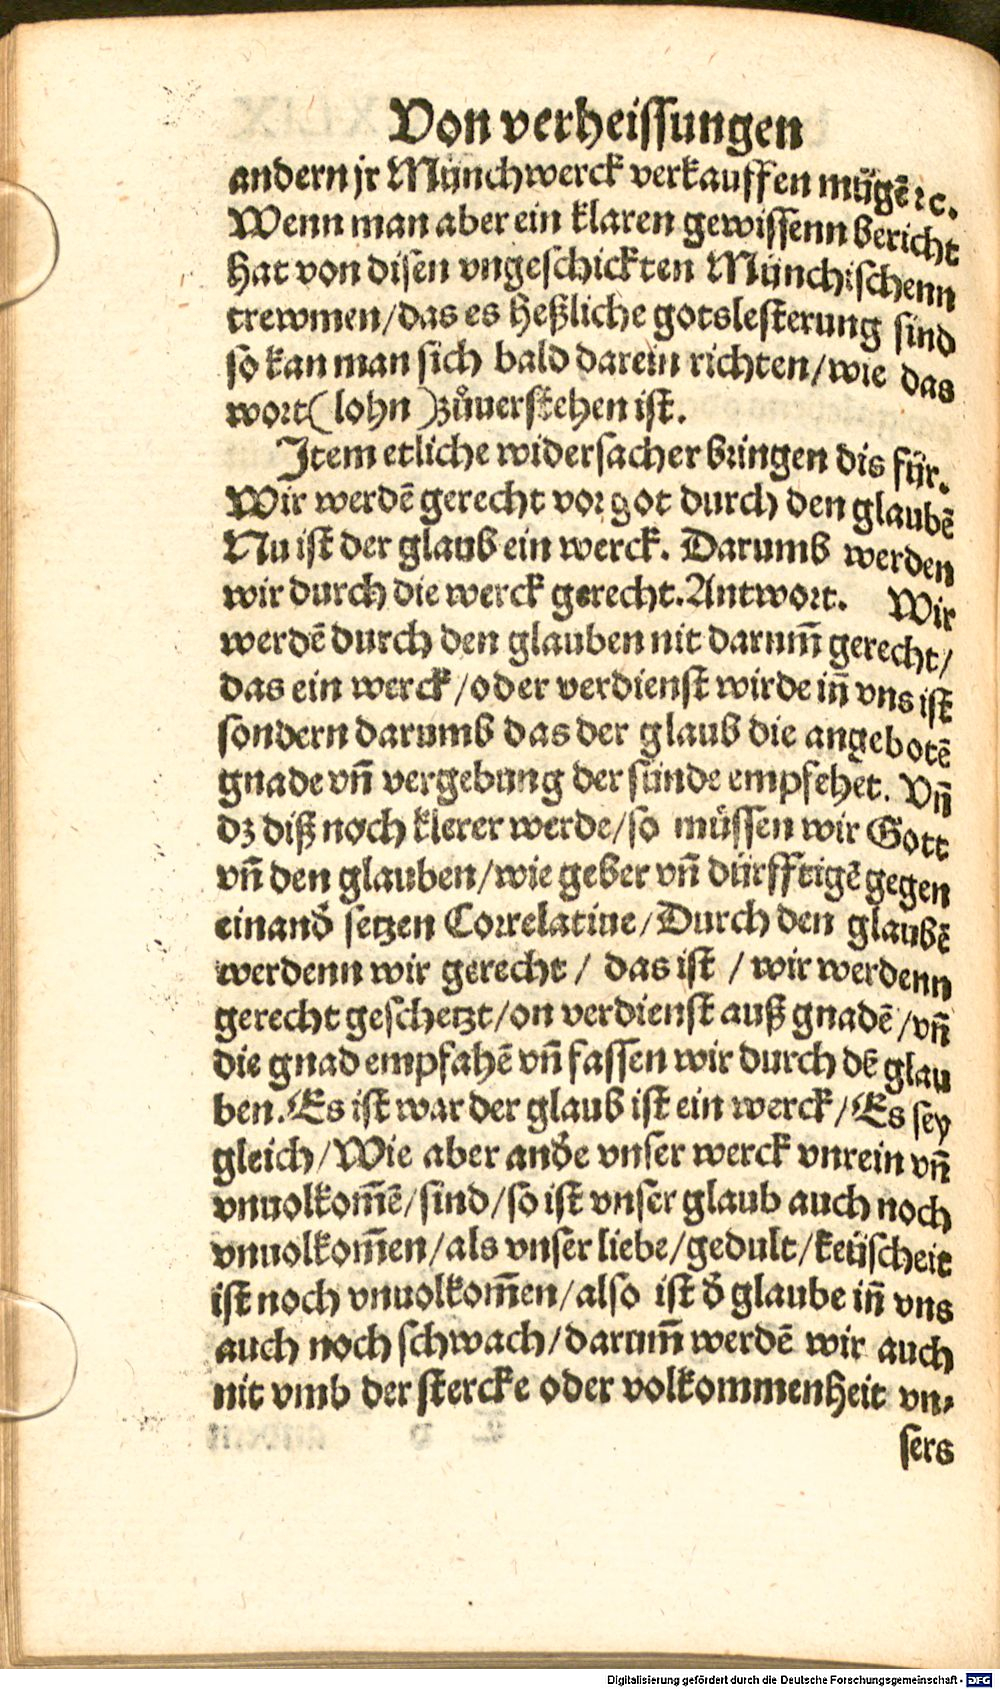 Von verheissungen
andern jr Münchwerck verkauffen mügẽ ꝛc.
Wenn man aber ein klaren gewissenn bericht
hat von disen vngeschickten Münchischenn
trewmen/das es heßliche gotslesterung sind
so kan man sich bald darein richten/wie das
wort(lohn)zůuerstehen ist.
Item etliche widersacher bringen dis für.
Wir werdẽ gerecht vor got durch den glaubẽ
Nu ist der glaub ein werck. Darumb werden
wir durch die werck gerecht.Antwort. Wir
werdẽ durch den glauben nit darum̃ gerecht/
das ein werck/oder verdienst wirde iñ vns ist
sondern darumb das der glaub die angebotẽ
gnade vñ vergebung der sünde empfehet. Vñ
dz diß noch klerer werde/so müssen wir Gott
vñ den glauben/wie geber vñ dürfftigẽ gegen
einand̛ setzen Correlatiue/Durch den glaubẽ
werdenn wir gerecht / das ist / wir werdenn
gerecht geschetzt/on verdienst auß gnadẽ/vñ
die gnad empfahẽ vñ fassen wir durch dẽ glau
ben.Es ist war der glaub ist ein werck/Es sey
gleich/Wie aber and̛e vnser werck vnrein vñ
vnuolkom̃ẽ/sind/so ist vnser glaub auch noch
vnuolkom̃en/als vnser liebe/gedult/keüscheit
ist noch vnuolkom̃en/also ist d̛ glaube iñ vns
auch noch schwach/darum̃ werdẽ wir auch
nit vmb der stercke oder volkommenheit vn⸗
sers
Digitalisierung gefördert durch die Deutsche Forschungsgemeinschaft - DFG